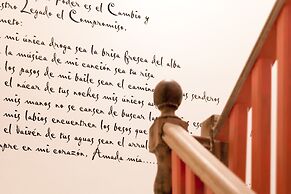 Poder es el Cambio y
stro Legado el Compromiso,
meto:
mi única droga sea la brisa fresca del alba
la música de mi canción sea tu risa
los pasos de mi baile sean el camino senderos
el nácar de tus noches mis únicos
mis manos no se cansen de buscar
mis labios encuentren los besos que
el baivén de tus aguas sean el arrul
mpre en mi corazón, Amada mía....